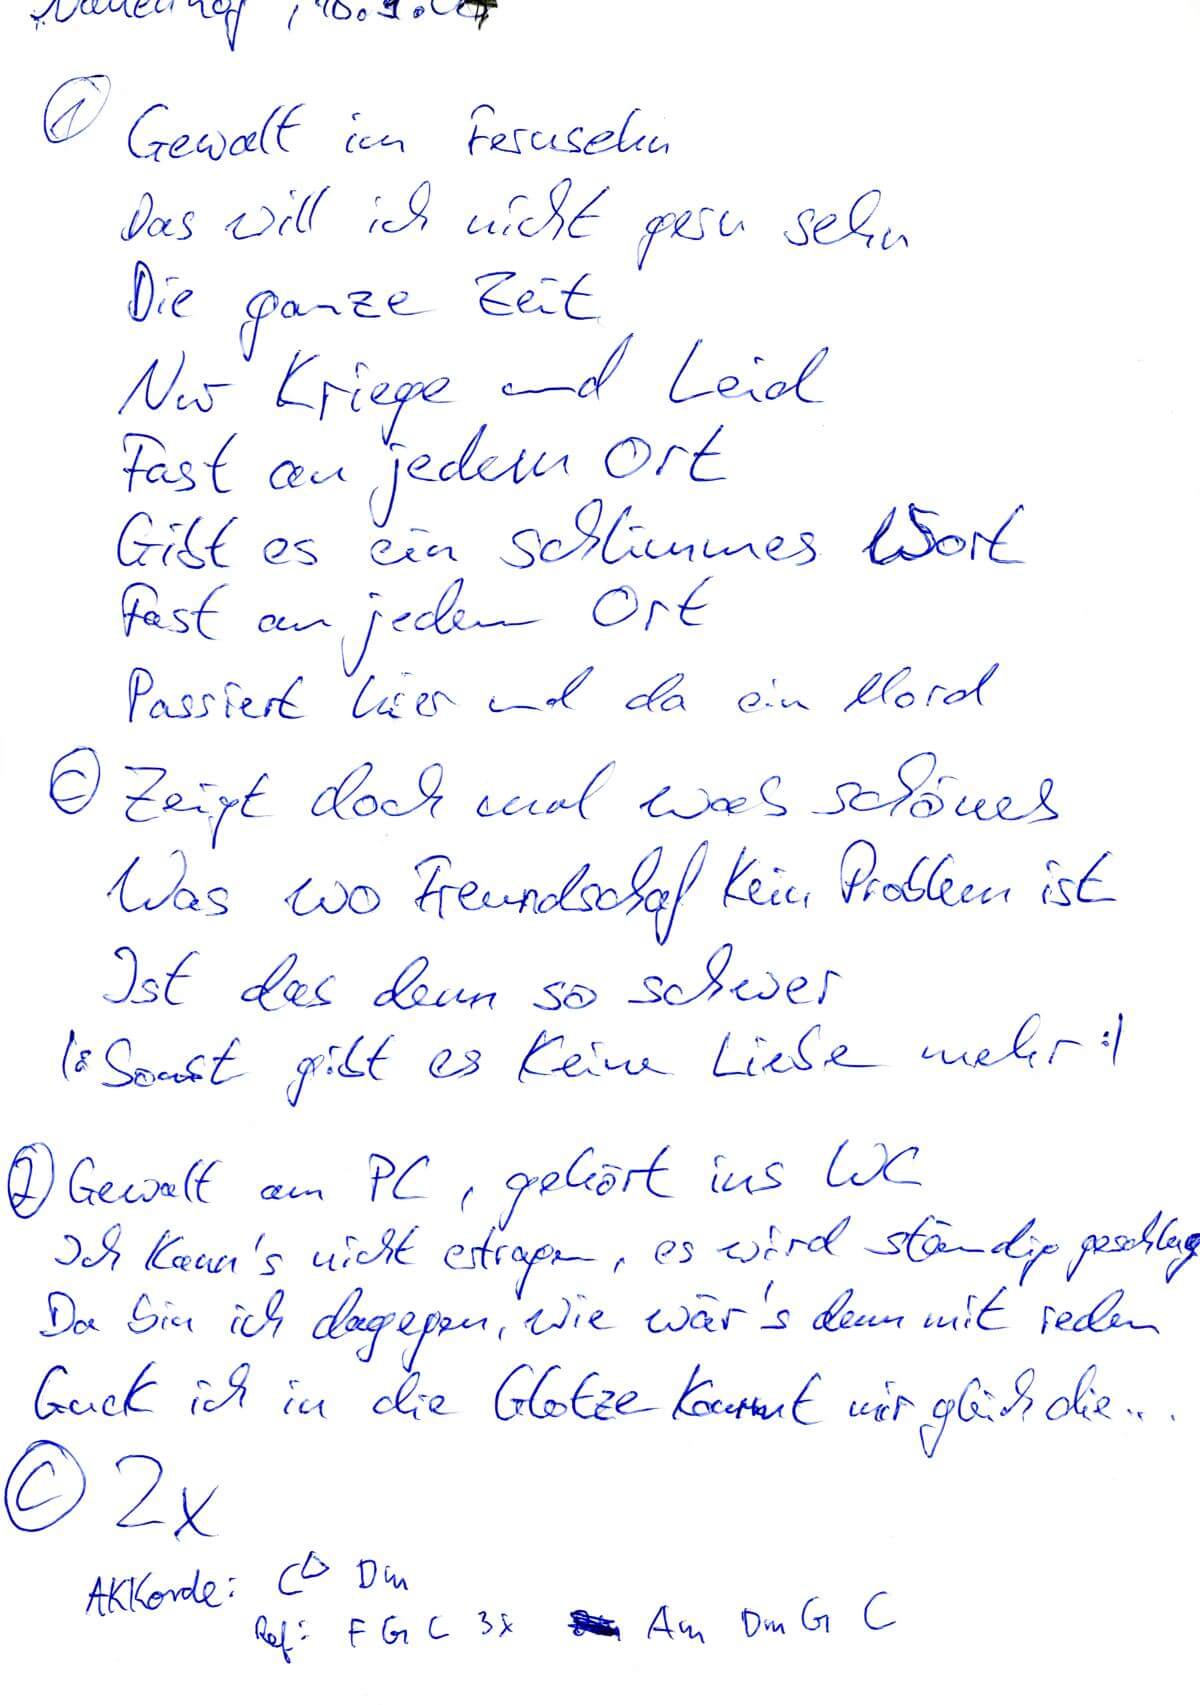 ①
Gewalt im Fernsehn
Das will ich nicht gern sehn
Die ganze Zeit
Nur Kriege und Leid
Fast an jedem Ort
Gibt es ein schlimmes Wort
Fast an jedem Ort
Passiert hier und da ein Mord
Ⓒ Zeigt doch mal was schönes
Was wo Freundschaf kein Problem ist
Ist das denn so schwer
|: Sonst gibt es keine Liebe mehr :|
② Gewalt am PC, gehört ins WC
Ich kann's nicht ertragen, es wird ständig geschlag
Da bin ich dagegen, wie wär's denn mit reden
Guck ich in die Glotze kommt mir gleich die...
Ⓒ 2x
Akkorde: C△ Dm
Ref: F G C 3x Am Dm G C